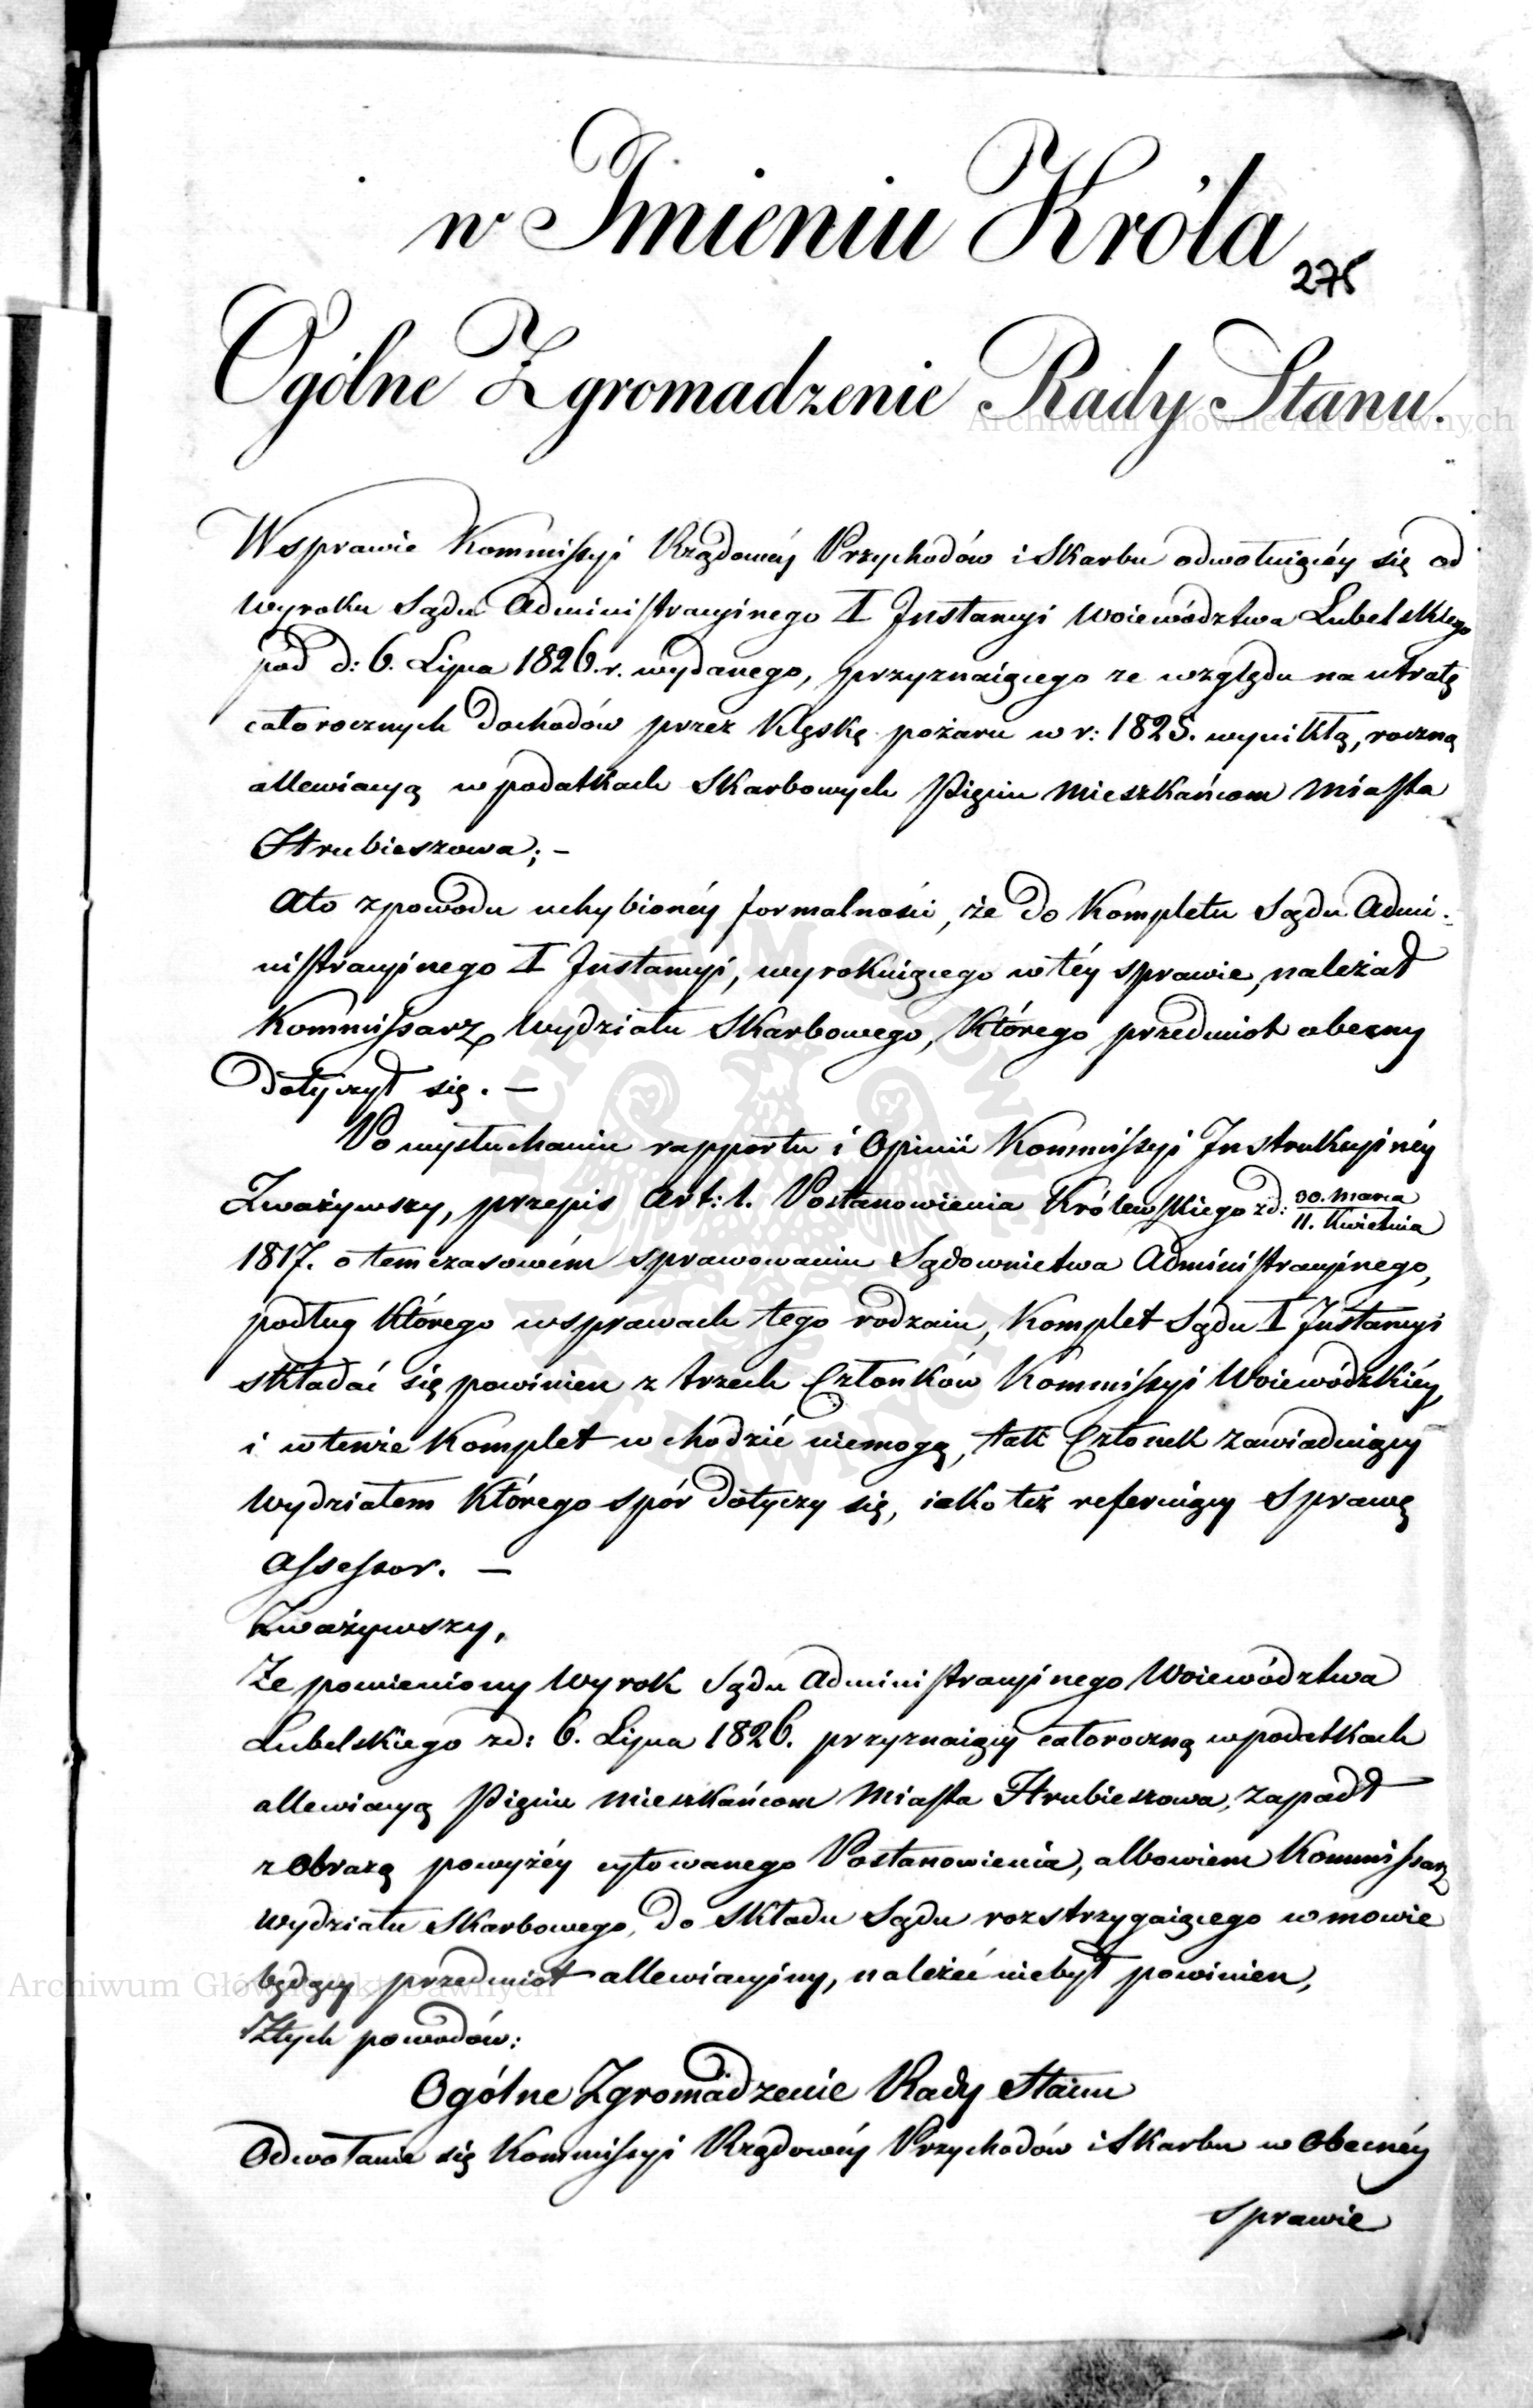 w Imieniu Króla
275
Ogólne Zgromadzenie Rady Stanu.
W sprawie Kommissyi Rządowéy Przychodów i Skarbu odwołuiącéy się od
Wyroku Sądu Administracyinego I Instancyi Woiewództwa Lubelskiego
pod d: 6. Lipca 1826. r. wydanego, przyznaiącego ze względu na utratę
całorocznych dochodów przez klęskę pożaru w r: 1825. wynikłą, roczną
allewiacyą w podatkach Skarbowych Pięciu Mieszkańcom Miasta
Hrubieszowa; —
A to z powodu uchybionéy formalności, że do Kompletu Sądu Admi-
nistracyinego I Instancyi, wyrokuiącego w téy sprawie, należał
Kommissarz Wydziału Skarbowego, którego przedmiot obecny
dotyczył się. —
Po wysłuchaniu rapportu i Opinii Kommissyi Instrukcyinéy
Zważywszy, przepis Art: 1. Postanowienia Królewskiego z d: 30. Marca / 11. Kwietnia
1817. o temczasowém sprawowaniu Sądownictwa Administracyinego,
podług którego w sprawach tego rodzaiu, Komplet Sądu I Instancyi
składać się powinien z trzech Członków Kommissyi Woiewódzkiéy,
i w tenże Komplet wchodzić niemogą, tak Członek zawiaduiący
Wydziałem którego spór dotyczy się, iako też referuiący Sprawę
Assessor. —
Zważywszy,
Że pomieniony Wyrok Sądu Administracyinego Woiewództwa
Lubelskiego z d: 6. Lipca 1826. przyznaiący całoroczną w podatkach
allewiacyą Pięciu Mieszkańcom Miasta Hrubieszowa, zapadł
z obrazą powyżéy cytowanego Postanowienia, albowiem Kommissarz
Wydziału Skarbowego, do składu Sądu rozstrzygaiącego w mowie
będący przedmiot allewiacyiny, należeć niebył powinien,
Z tych powodów:
Ogólne Zgromadzenie Rady Stanu
Odwołanie się Kommissyi Rządowéy Przychodów i Skarbu w obecnéy
sprawie
Archiwum Główne Akt Dawnych
Archiwum Główne Akt Dawnych
ARCHIWUM GŁÓWNE AKT DAWNYCH